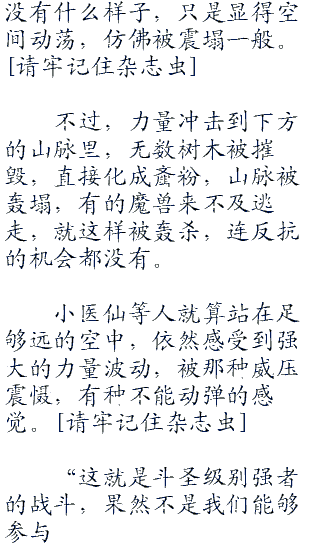 没有什么样子，只是显得空
间动荡，仿佛被震塌一般。
[请牢记住杂志虫]
不过，力量冲击到下方
的山脉里，无数树木被摧
毁，直接化成齑粉，山脉被
轰塌，有的魔兽来不及逃
走，就这样被轰杀，连反抗
的机会都没有。
小医仙等人就算站在足
够远的空中，依然感受到强
大的力量波动，被那种威压
震慑，有种不能动弹的感
觉。[请牢记住杂志虫]
“这就是斗圣级别强者
的战斗，果然不是我们能够
参与